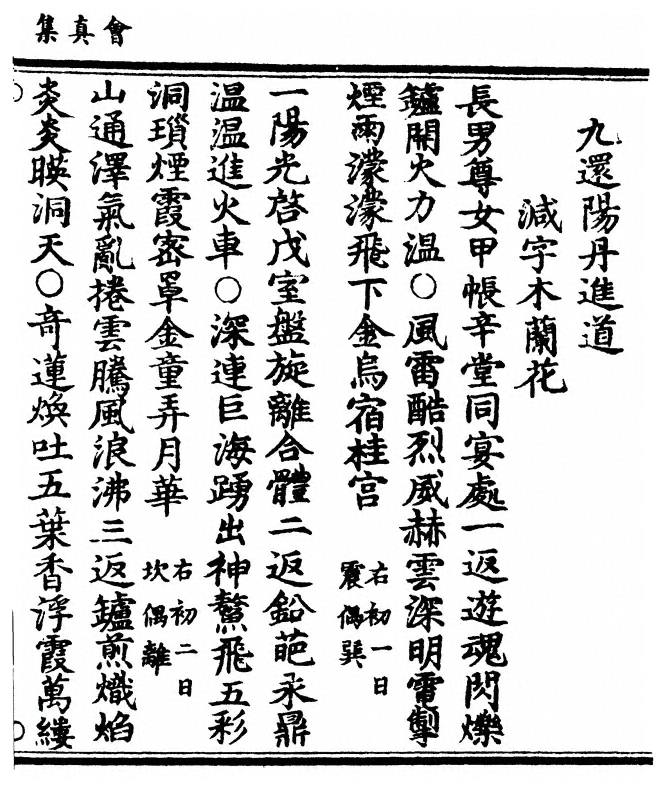 會真集
九還陽丹進道
減字木蘭花
長男尊女甲帳辛堂同宴處一返遊魂閃爍
鑪開火力溫○風雷酷烈威赫雲深明電掣
煙雨濛濛飛下金烏宿桂宮
右初一日
震偶巽
一陽光啓戊室盤旋離合體二返鉛葩永鼎
溫溫進火車○深連巨海踴出神鰲飛五彩
洞瑣煙霞密罩金童弄月華
右初二日
坎偶離
山通澤氣亂捲雲騰風浪沸三返鑪煎熾焰
炎炎暎洞天○竒蓮煥吐五葉香浮霞萬縷